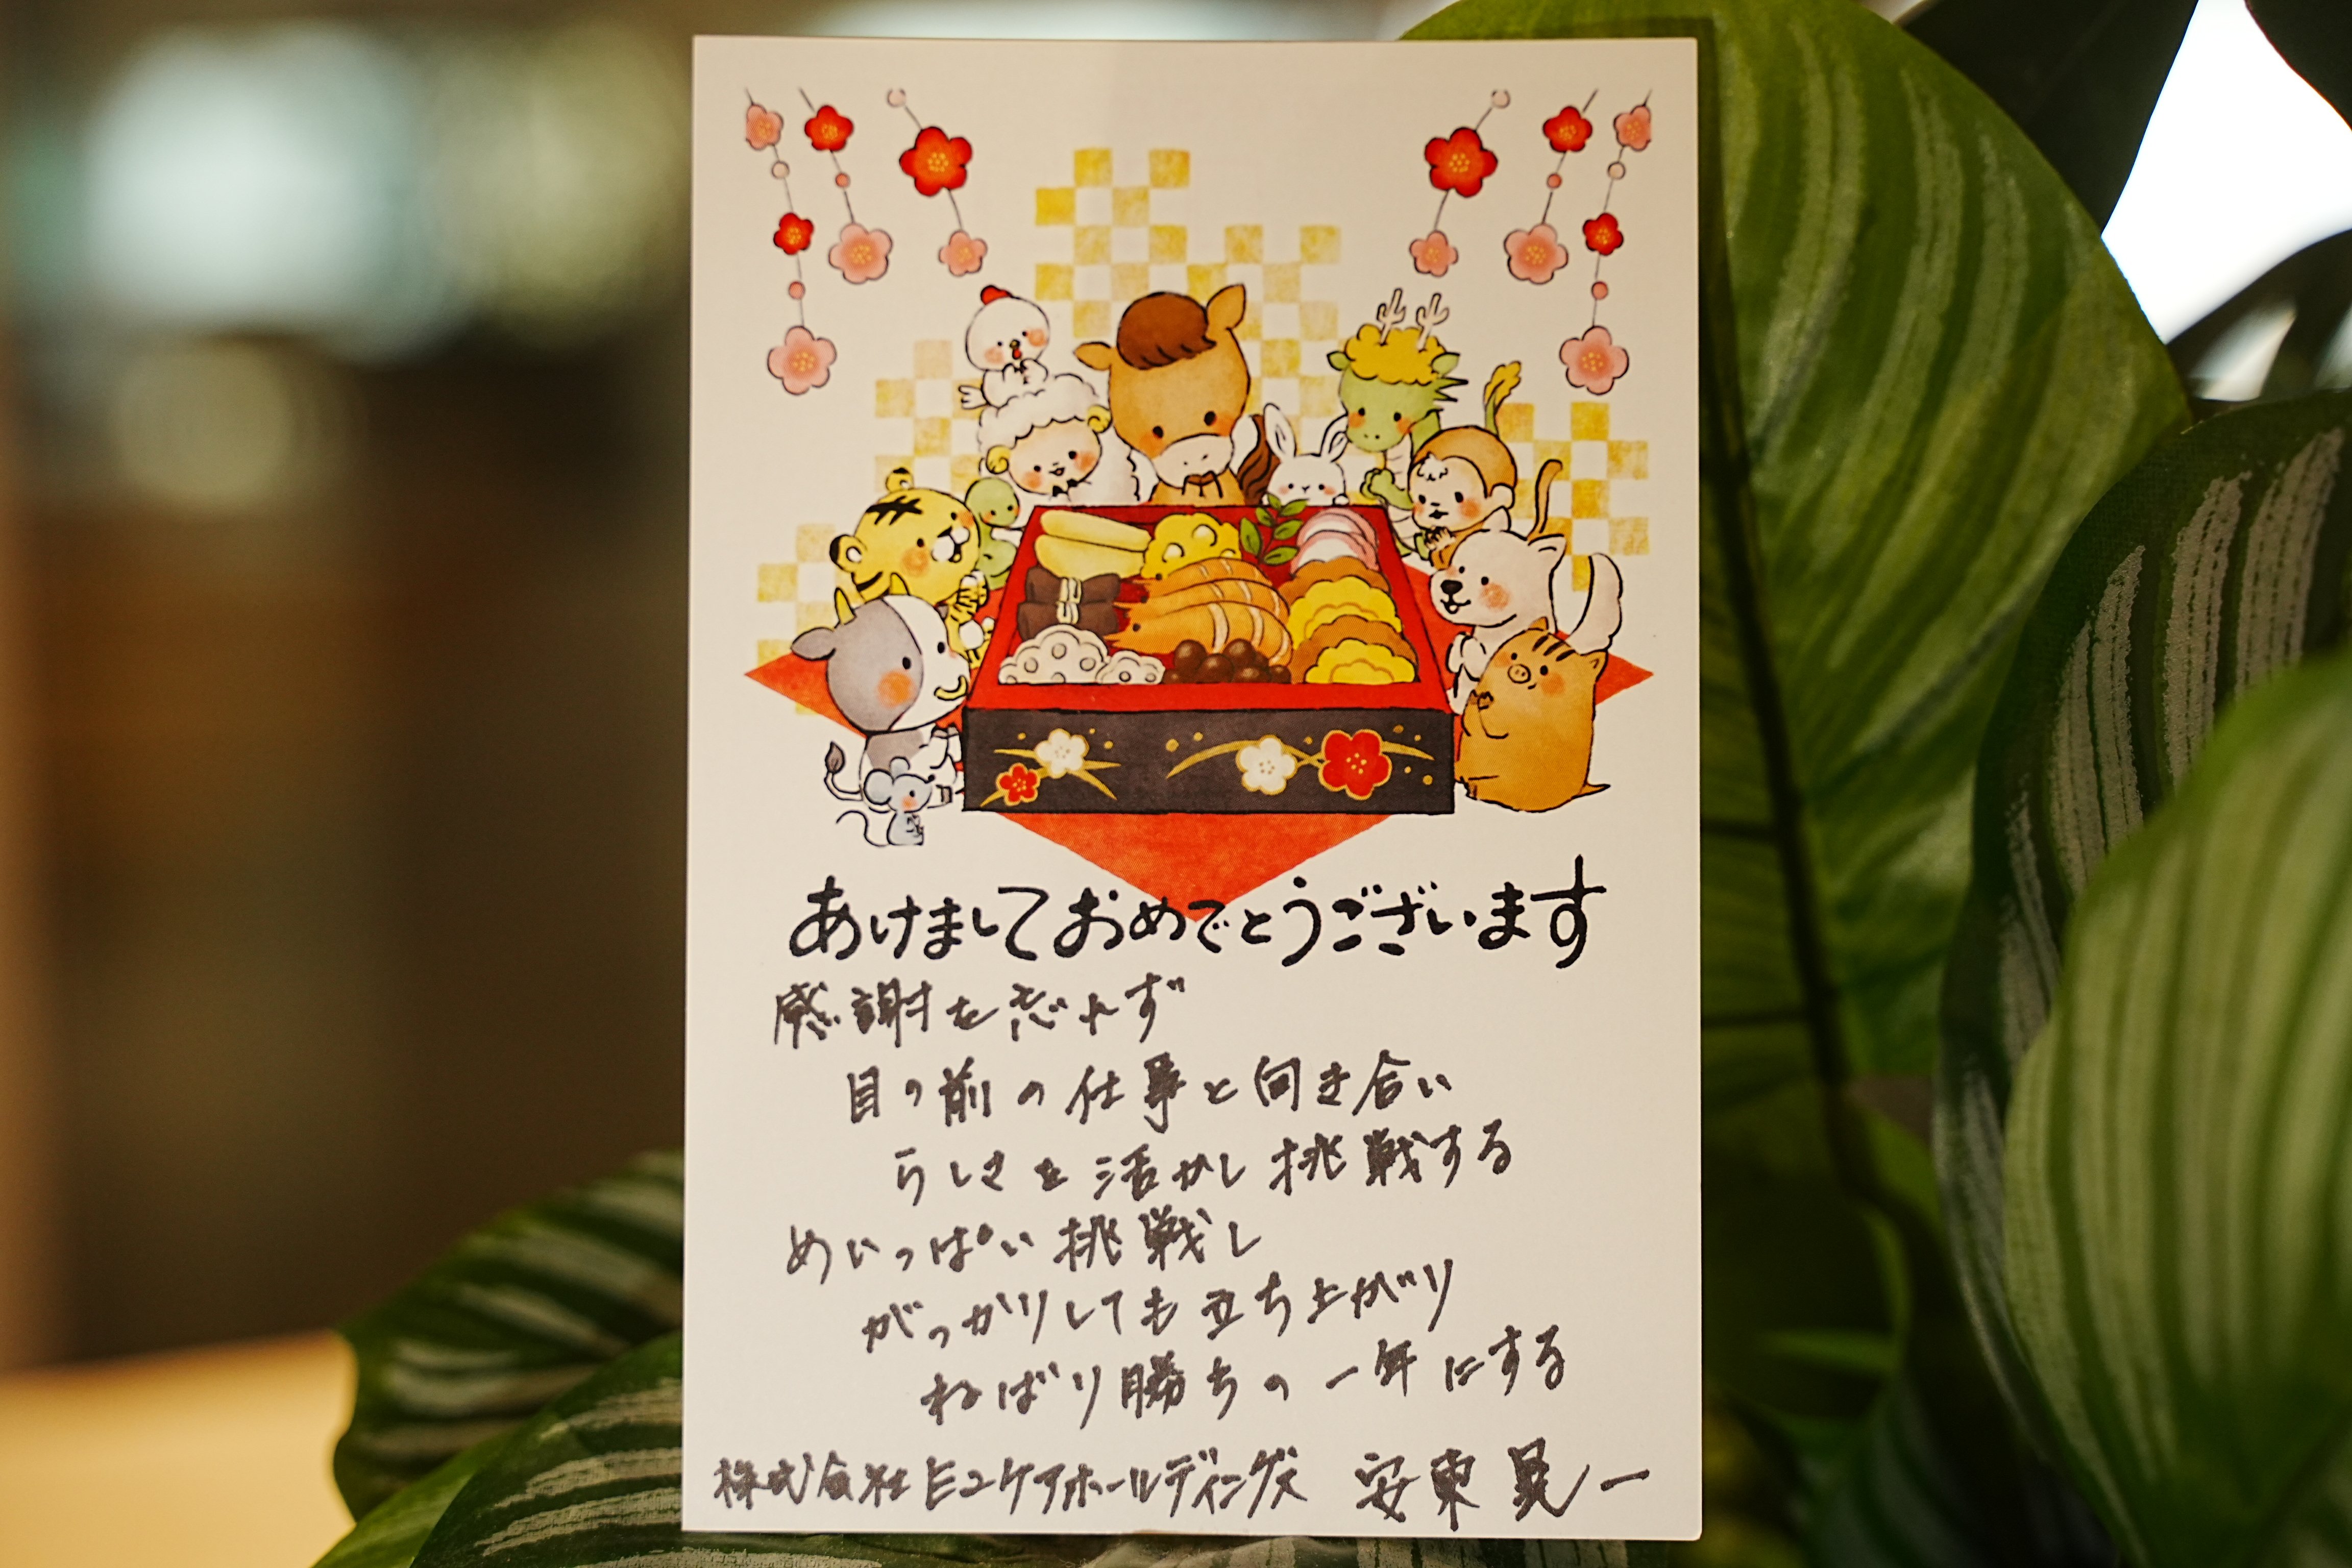 あけましておめでとうございます
感謝を忘れず
目の前の仕事と向き合い
らしさを活かし挑戦する
めいっぱい挑戦し
がっかりしても立ち上がり
ねばり勝ちの一年にする
株式会社ヒューケアホールディングス 安東晃一